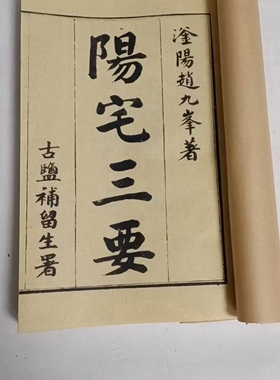 滏陽趙九峯著
陽宅三要
古鹽補留生署